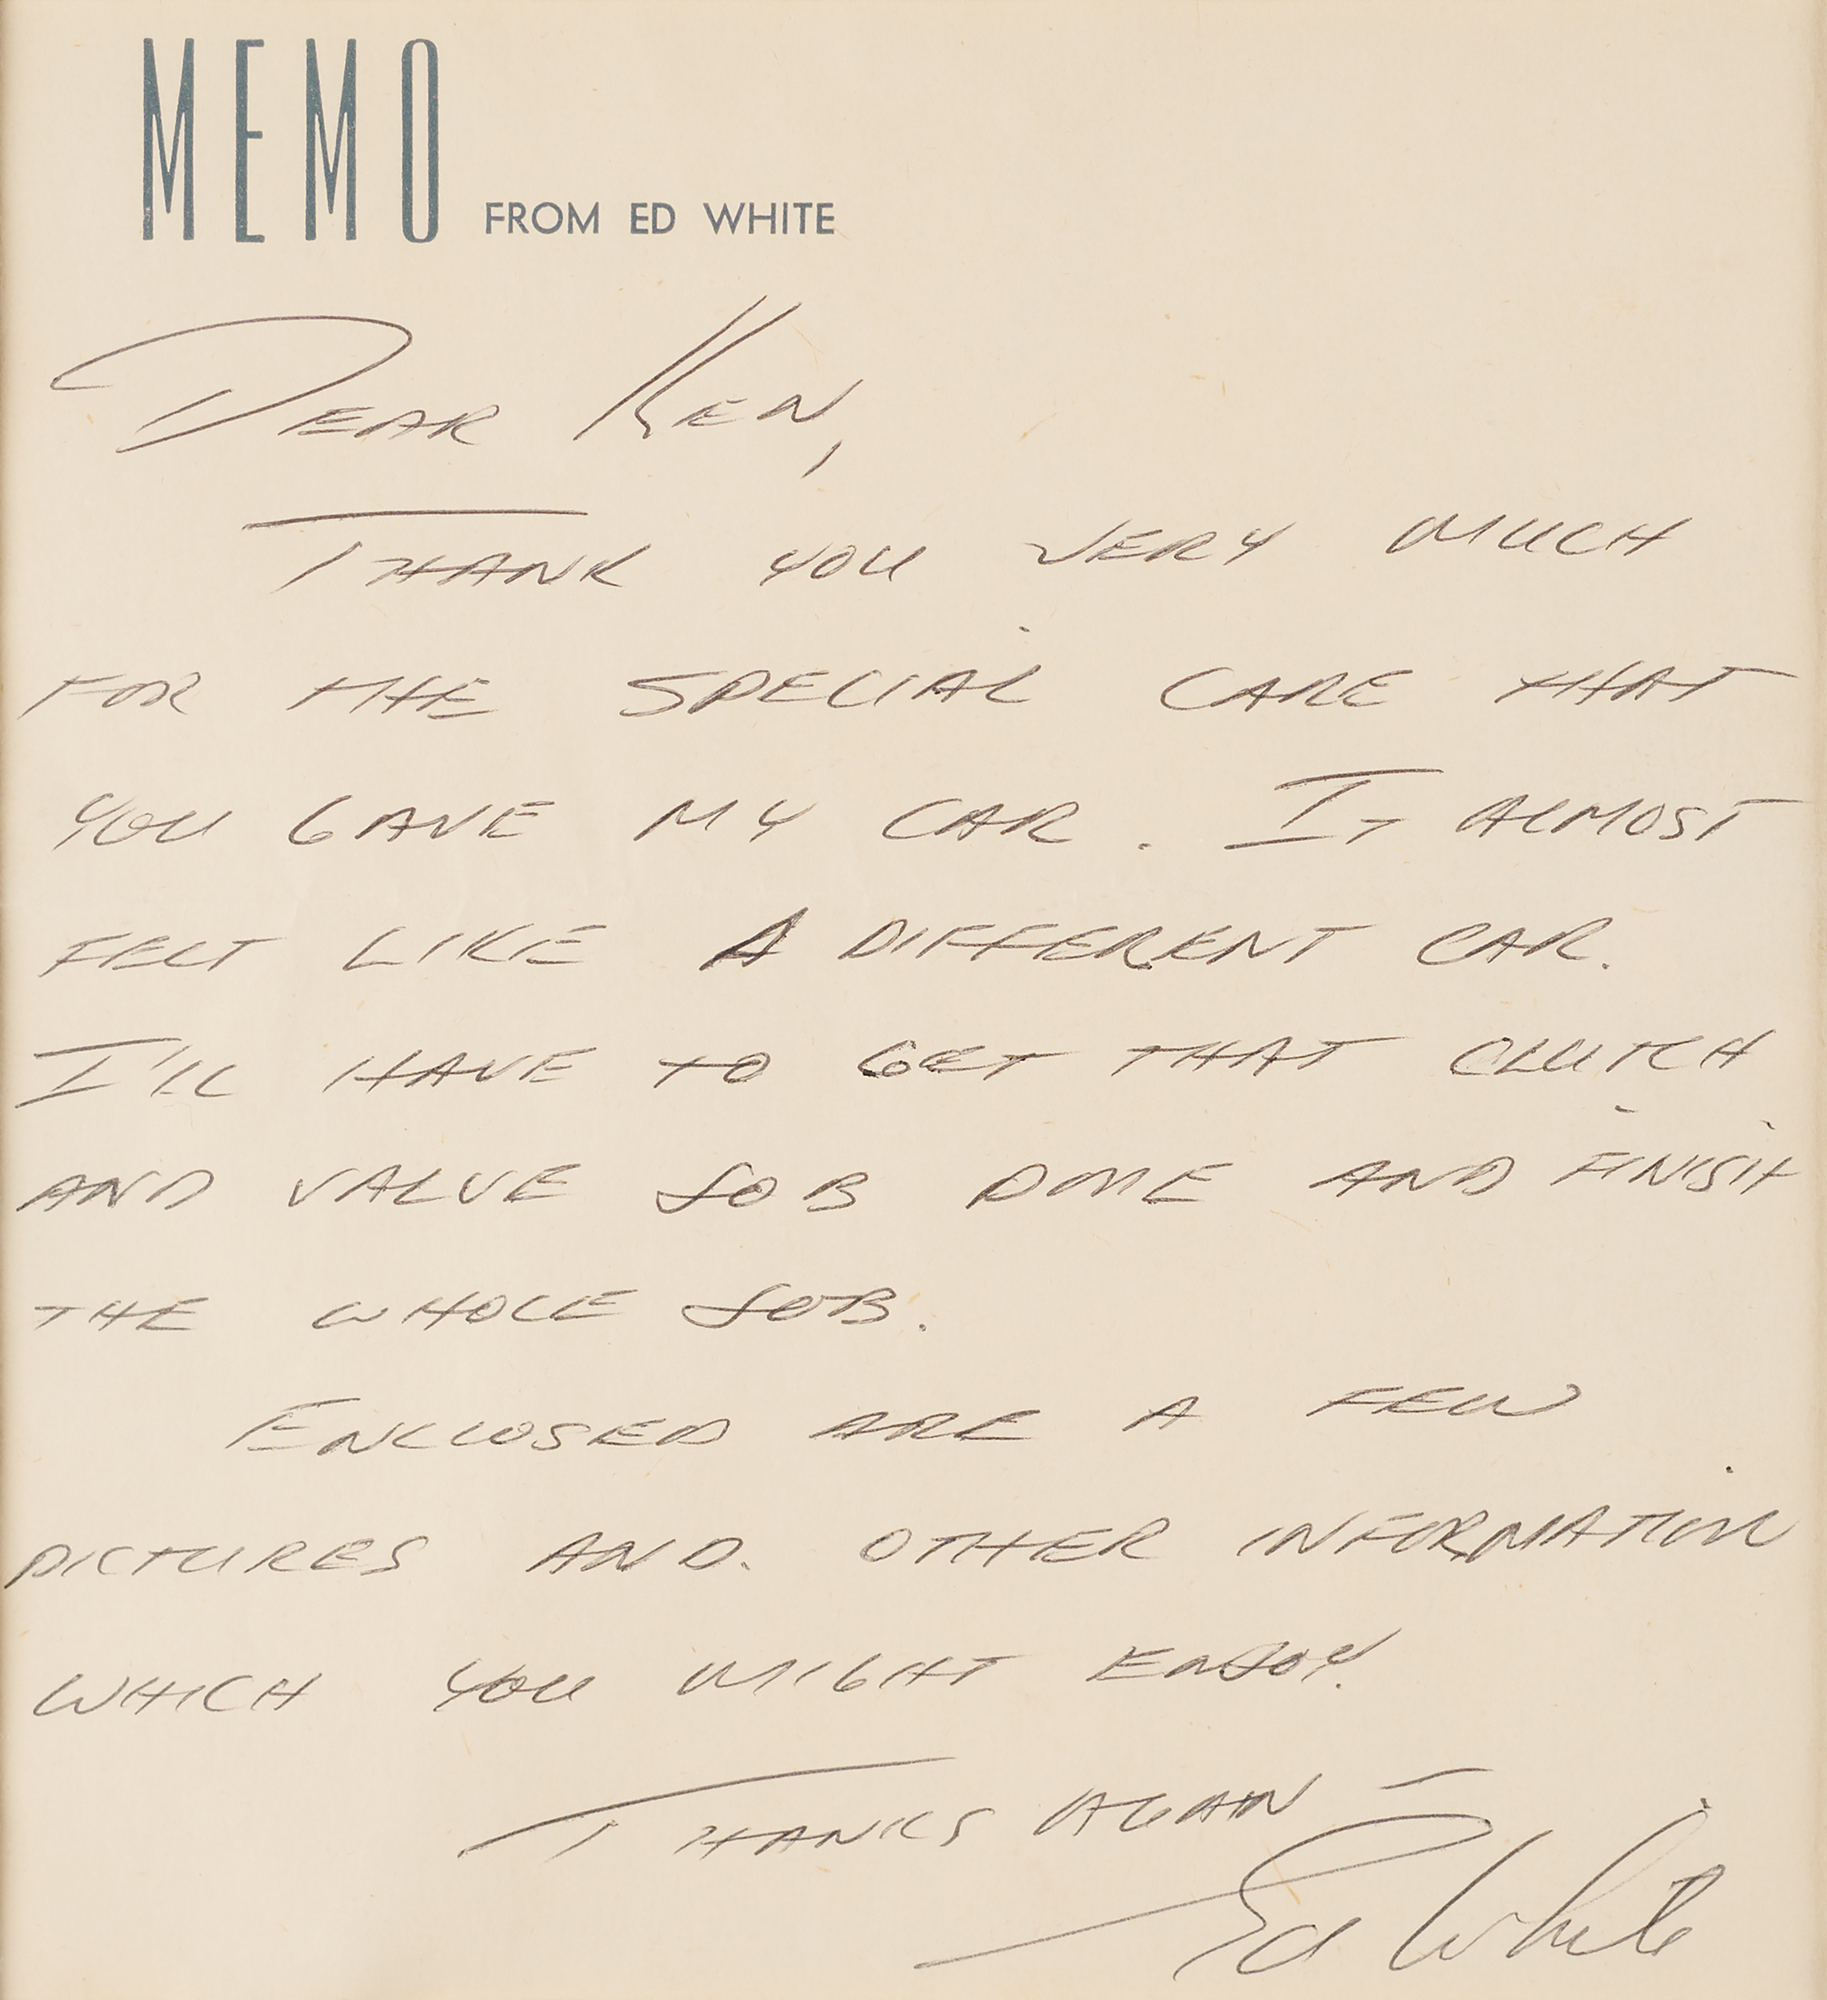 MEMO FROM ED WHITE
DEAR KEN,
THANK YOU VERY MUCH
FOR THE SPECIAL CARE THAT
YOU GAVE MY CAR. IT ALMOST
FELT LIKE A DIFFERENT CAR.
I'LL HAVE TO GET THAT CLUTCH
AND VALVE JOB DONE AND FINISH
THE WHOLE JOB.
ENCLOSED ARE A FEW
PICTURES AND OTHER INFORMATION
WHICH YOU MIGHT ENJOY.
THANKS AGAIN –
Ed White